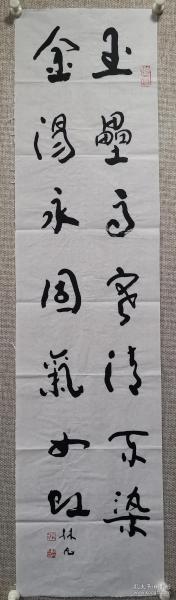 玉壘高寒清不染
金湯永固氣如虹
林凡